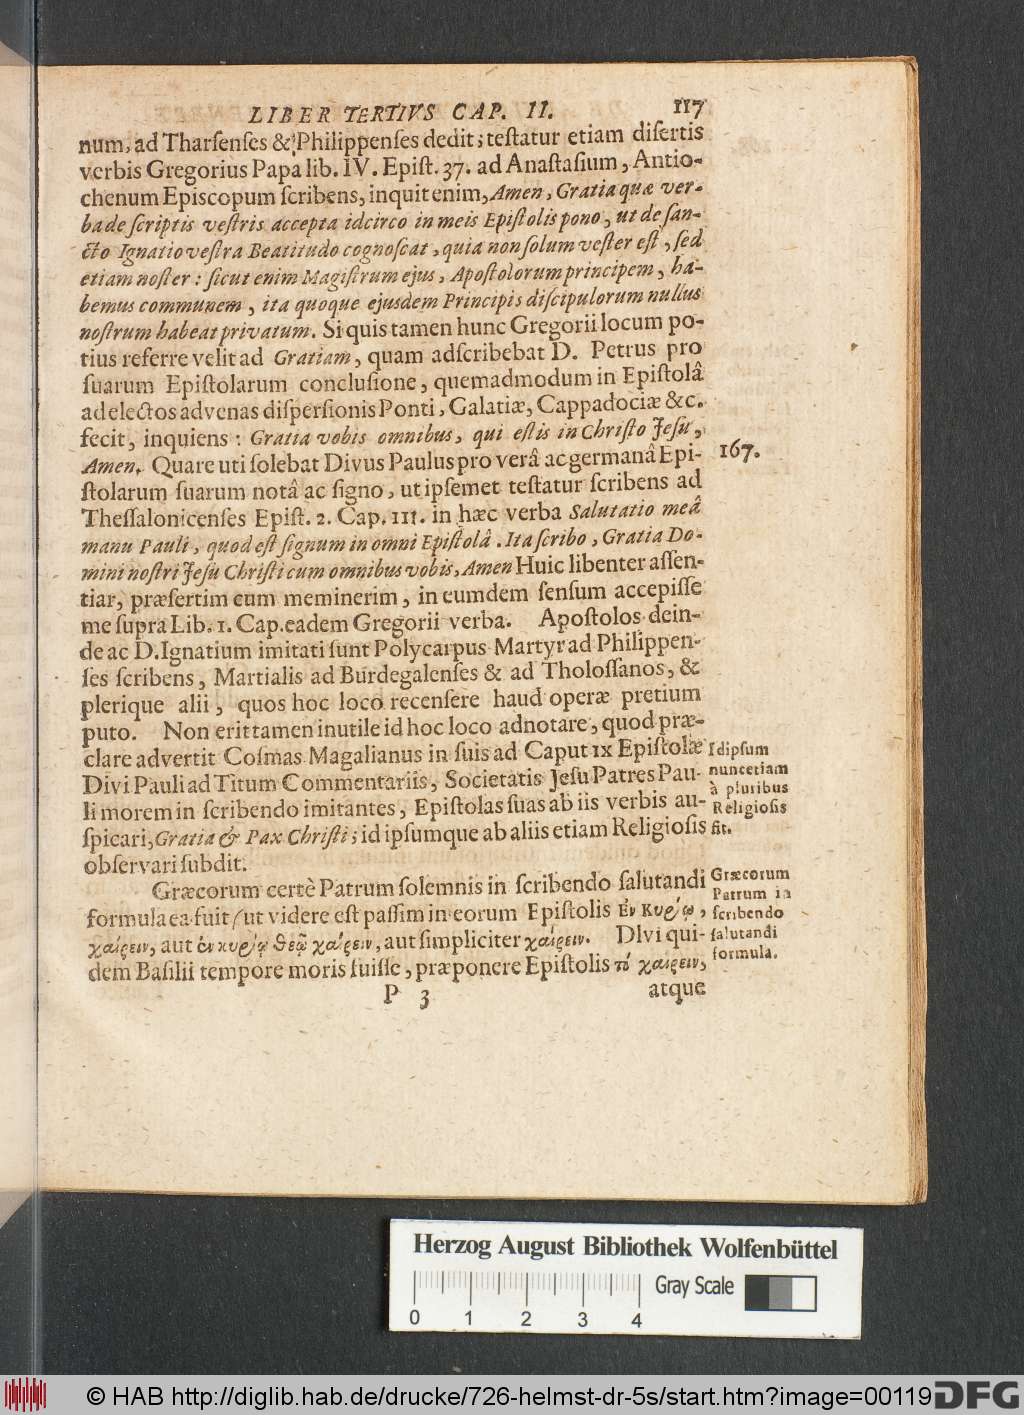 LIBER TERTIVS CAP. II. 117
num, ad Tharſenſes & Philippenſes dedit; teſtatur etiam diſertis
verbis Gregorius Papa lib. IV. Epiſt. 37. ad Anaſtaſium, Antio-
chenum Epiſcopum ſcribens, inquit enim, Amen, Gratia quæ ver-
ba de ſcriptis veſtris accepta idcirco in meis Epiſtolis pono, ut de ſan-
cto Ignatio veſtra Beatitudo cognoſcat, quia non ſolum veſter eſt, ſed
etiam noſter: ſicut enim Magiſtrum ejus, Apoſtolorum principem, ha-
bemus communem, ita quoque ejusdem Principis diſcipulorum nullus
noſtrum habeat privatum. Si quis tamen hunc Gregorii locum po-
tius referre velit ad Gratiam, quam adſcribebat D. Petrus pro
ſuarum Epiſtolarum concluſione, quemadmodum in Epiſtolâ
ad electos advenas diſperſionis Ponti, Galatiæ, Cappadociæ &c.
fecit, inquiens: Gratia vobis omnibus, qui eſtis in Chriſto Jeſu,
Amen. Quare uti ſolebat Divus Paulus pro verâ ac germanâ Epi-
ſtolarum ſuarum notâ ac ſigno, ut ipſemet teſtatur ſcribens ad
Theſſalonicenſes Epiſt. 2. Cap. III. in hæc verba Salutatio meâ
manu Pauli, quod eſt ſignum in omni Epiſtolâ. Ita ſcribo, Gratia Do-
mini noſtri Jeſu Chriſti cum omnibus vobis, Amen Huic libenter aſſen-
tiar, præſertim cum meminerim, in eumdem ſenſum accepiſſe
me ſupra Lib. I. Cap. eadem Gregorii verba. Apoſtolos dein-
de ac D. Ignatium imitati ſunt Polycarpus Martyr ad Philippen-
ſes ſcribens, Martialis ad Burdegalenſes & ad Tholoſſanos, &
plerique alii, quos hoc loco recenſere haud operæ pretium
puto. Non erit tamen inutile id hoc loco adnotare, quod præ-
clare advertit Coſmas Magalianus in ſuis ad Caput IX Epiſtolæ
Divi Pauli ad Titum Commentariis, Societatis Jeſu Patres Pau-
li morem in ſcribendo imitantes, Epiſtolas ſuas ab iis verbis au-
ſpicari, Gratia & Pax Chriſti; id ipſumque ab aliis etiam Religioſis
obſervari ſubdit.
Græcorum certè Patrum ſolemnis in ſcribendo ſalutandi
formula ea fuit, ut videre eſt paſſim in eorum Epiſtolis Ἐν Κυρίῳ,
χαίρειν, aut ἐν κυρίῳ Θεῷ χαίρειν, aut ſimpliciter χαίρειν. DIvi qui-
dem Baſilii tempore moris fuiſſe, præponere Epiſtolis τὸ χαίρειν,
P 3 atque
167.
Idipſum
nunc etiam
à pluribus
Religioſis
fit.
Græcorum
Patrum in
ſcribendo
ſalutandi
formula.
Herzog August Bibliothek Wolfenbüttel
Gray Scale
0 1 2 3 4
© HAB http://diglib.hab.de/drucke/726-helmst-dr-5s/start.htm?image=00119
DFG